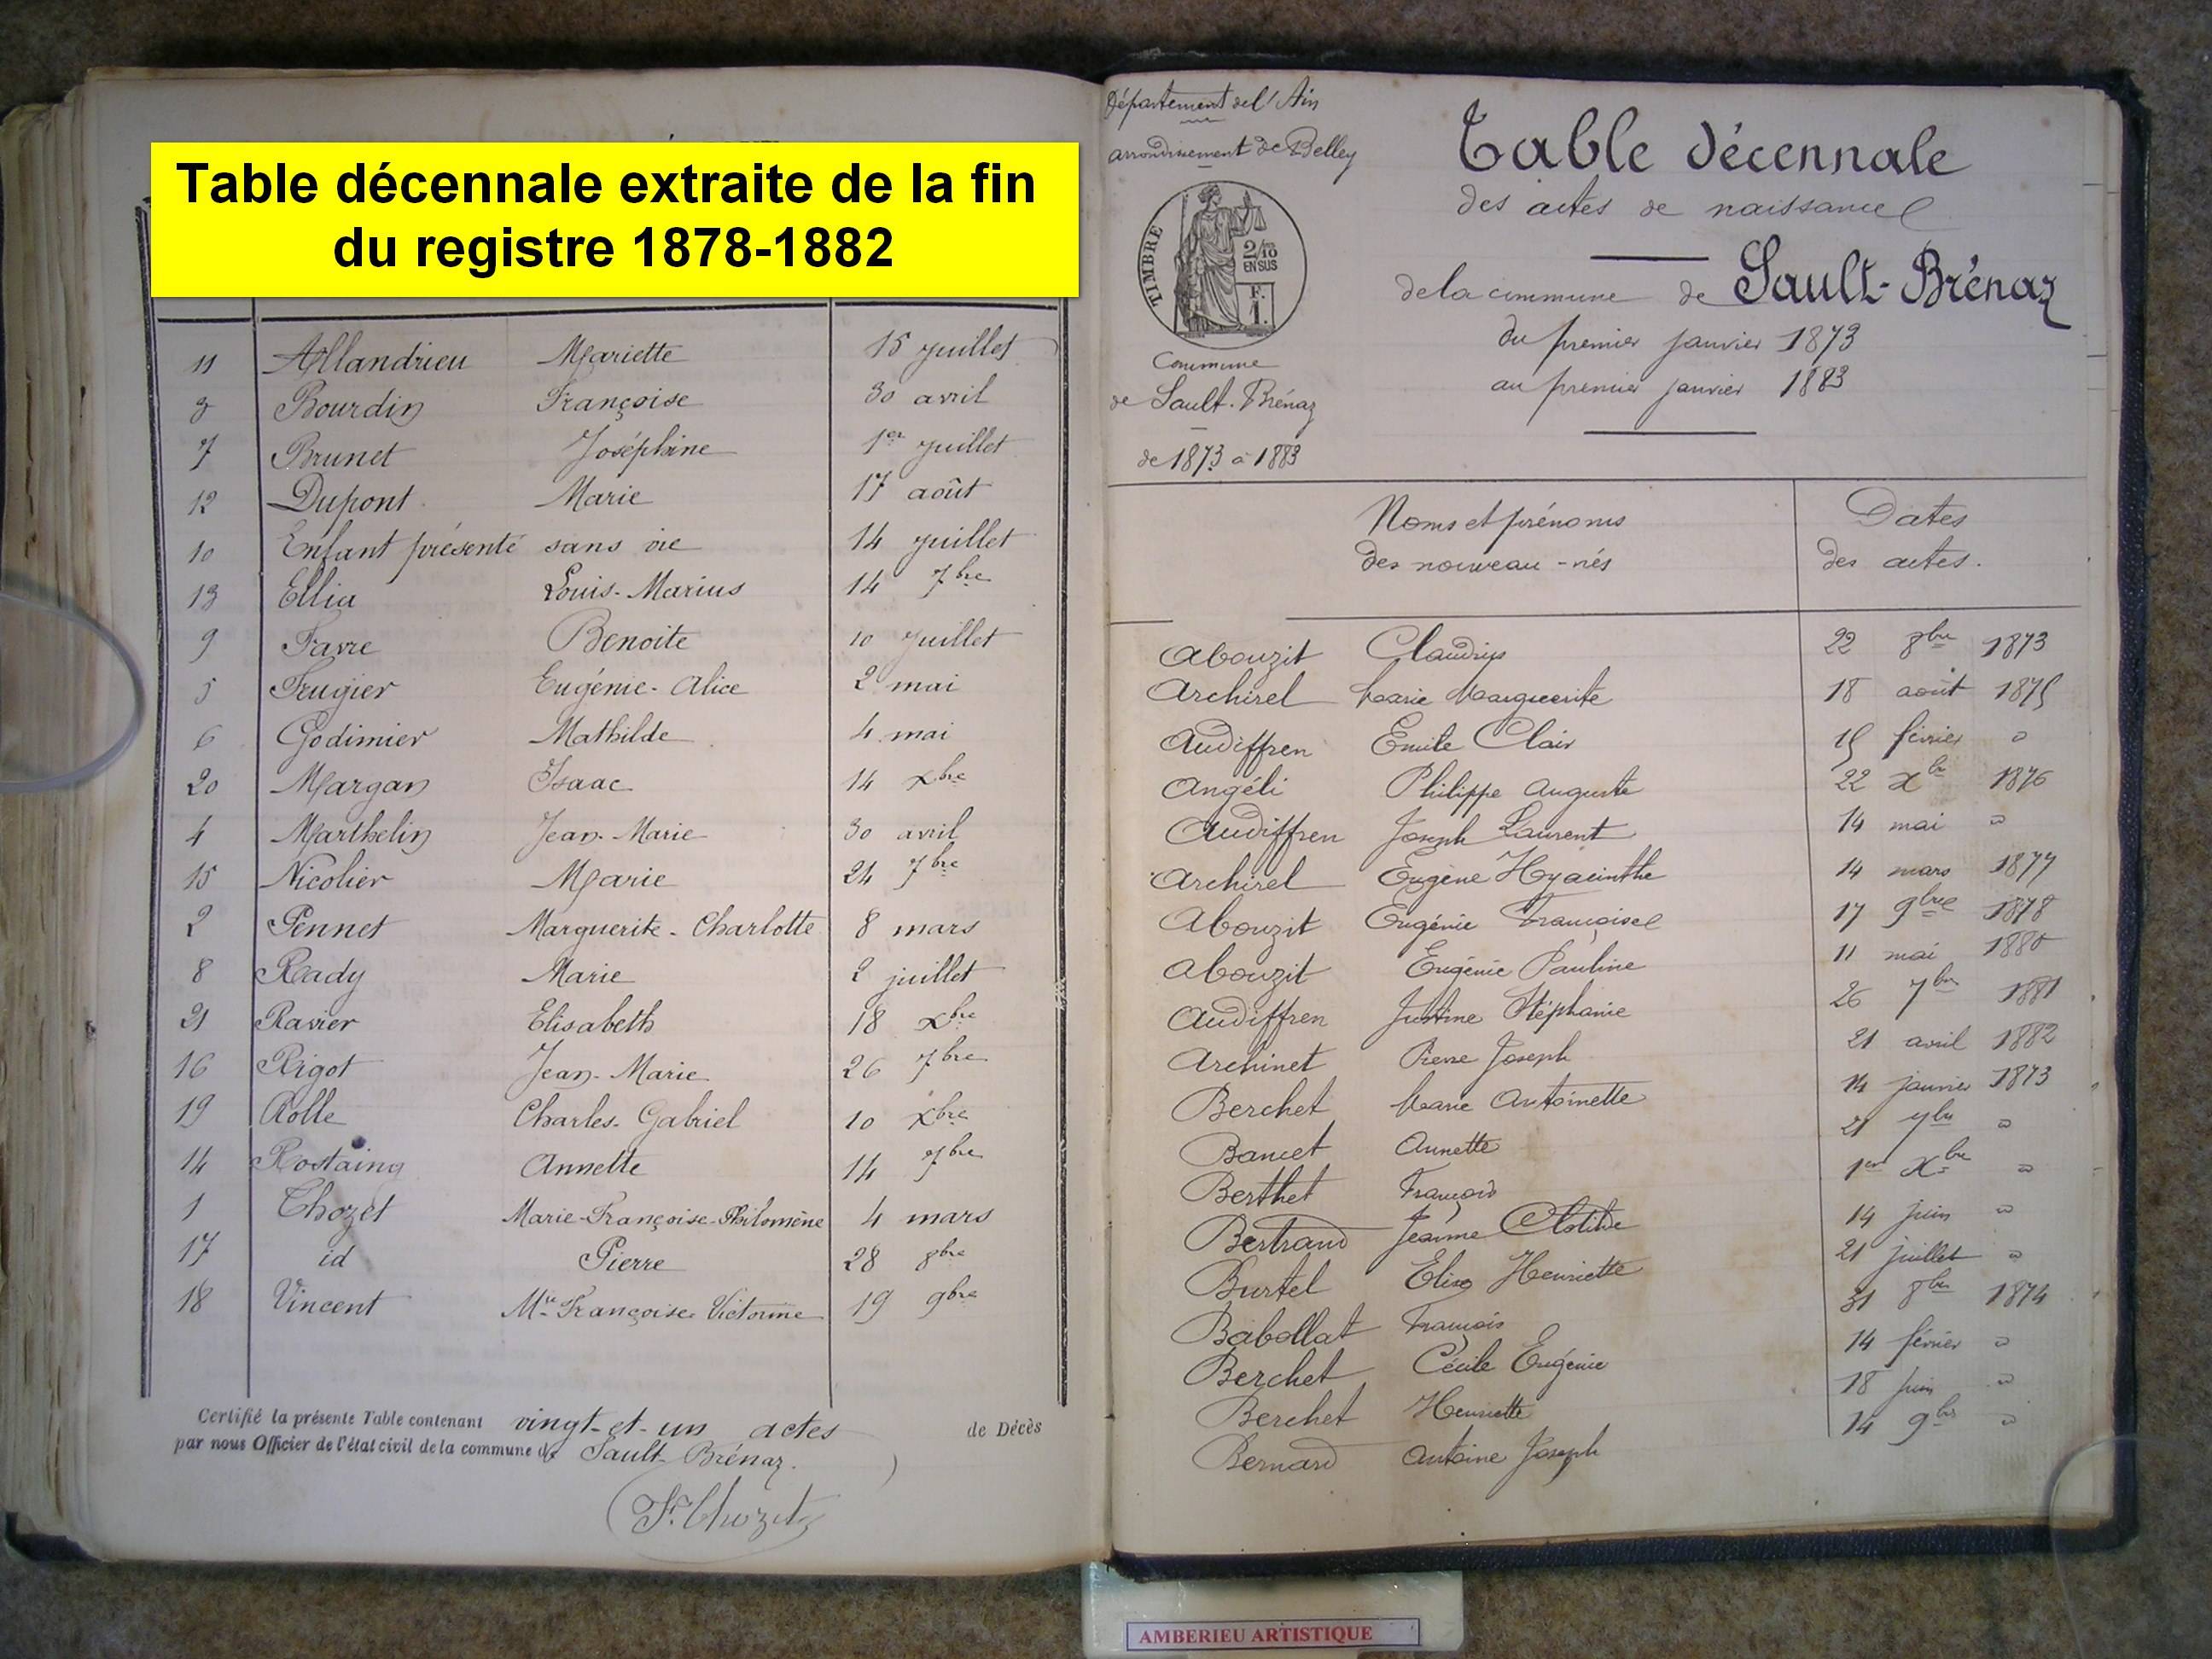 Table décennale extraite de la fin
du registre 1878-1882
11 Allandrieu Mariette 15 juillet
3 Bourdin Françoise 30 avril
7 Brunet Joséphine 1er juillet
12 Dupont Marie 17 août
10 Enfant présenté sans vie 14 juillet
13 Ellia Louis-Marius 14 7bre
9 Favre Benoite 10 juillet
5 Frugier Eugénie-Alice 2 mai
6 Godimier Mathilde 4 mai
20 Margan Isaac 14 xbre
4 Marthelin Jean-Marie 30 avril
15 Nicolier Marie 24 7bre
2 Pennet Marguerite-Charlotte 8 mars
8 Rady Marie 2 juillet
21 Ravier Elisabeth 18 xbre
16 Rigot Jean-Marie 26 7bre
19 Rolle Charles-Gabriel 10 xbre
14 Rostaing Annette 14 7bre
1 Chozet Marie-Françoise-Philomène 4 mars
17 id Pierre 28 8bre
18 Vincent Mie Françoise Victorine 19 9bre
Certifié la présente Table contenant vingt-et-un actes de Décès
par nous Officier de l'état civil de la commune de Sault-Brénaz.
F. Chozet
Département de l'Ain
arrondissement de Belley
TIMBRE
2/10
EN SUS
F.
1.
Commune
de Sault-Brénaz
de 1873 à 1883
Table décennale
des actes de naissance
de la commune de Sault-Brénaz
du premier janvier 1873
au premier janvier 1883
Noms et prénoms
des nouveau-nés
Dates
des actes.
Abouzit Claudius 22 8bre 1873
Archirel Marie Marguerite 18 août 1875
Audiffren Emile Clair 15 février "
Angéli Philippe Auguste 22 xbr 1876
Audiffren Joseph Laurent 14 mai "
Archirel Eugène Hyacinthe 14 mars 1877
Abouzit Eugénie Françoise 17 9bre 1878
Abouzit Eugénie Pauline 11 mai 1880
Audiffren Justine Stéphanie 26 7bre 1881
Archinet Pierre Joseph 21 avril 1882
Berchet Marie Antoinette 14 janvier 1873
Bancet Annette 21 9bre "
Berthet François 1er xbre "
Bertrand Jeanne Clotilde 14 juin "
Burtel Elise Henriette 21 juillet "
Babollat François 31 8bre 1874
Berchet Cécile Eugénie 14 février "
Berchet Henriette 18 juin "
Bernard Antoine Joseph 14 9bre "
AMBERIEU ARTISTIQUE